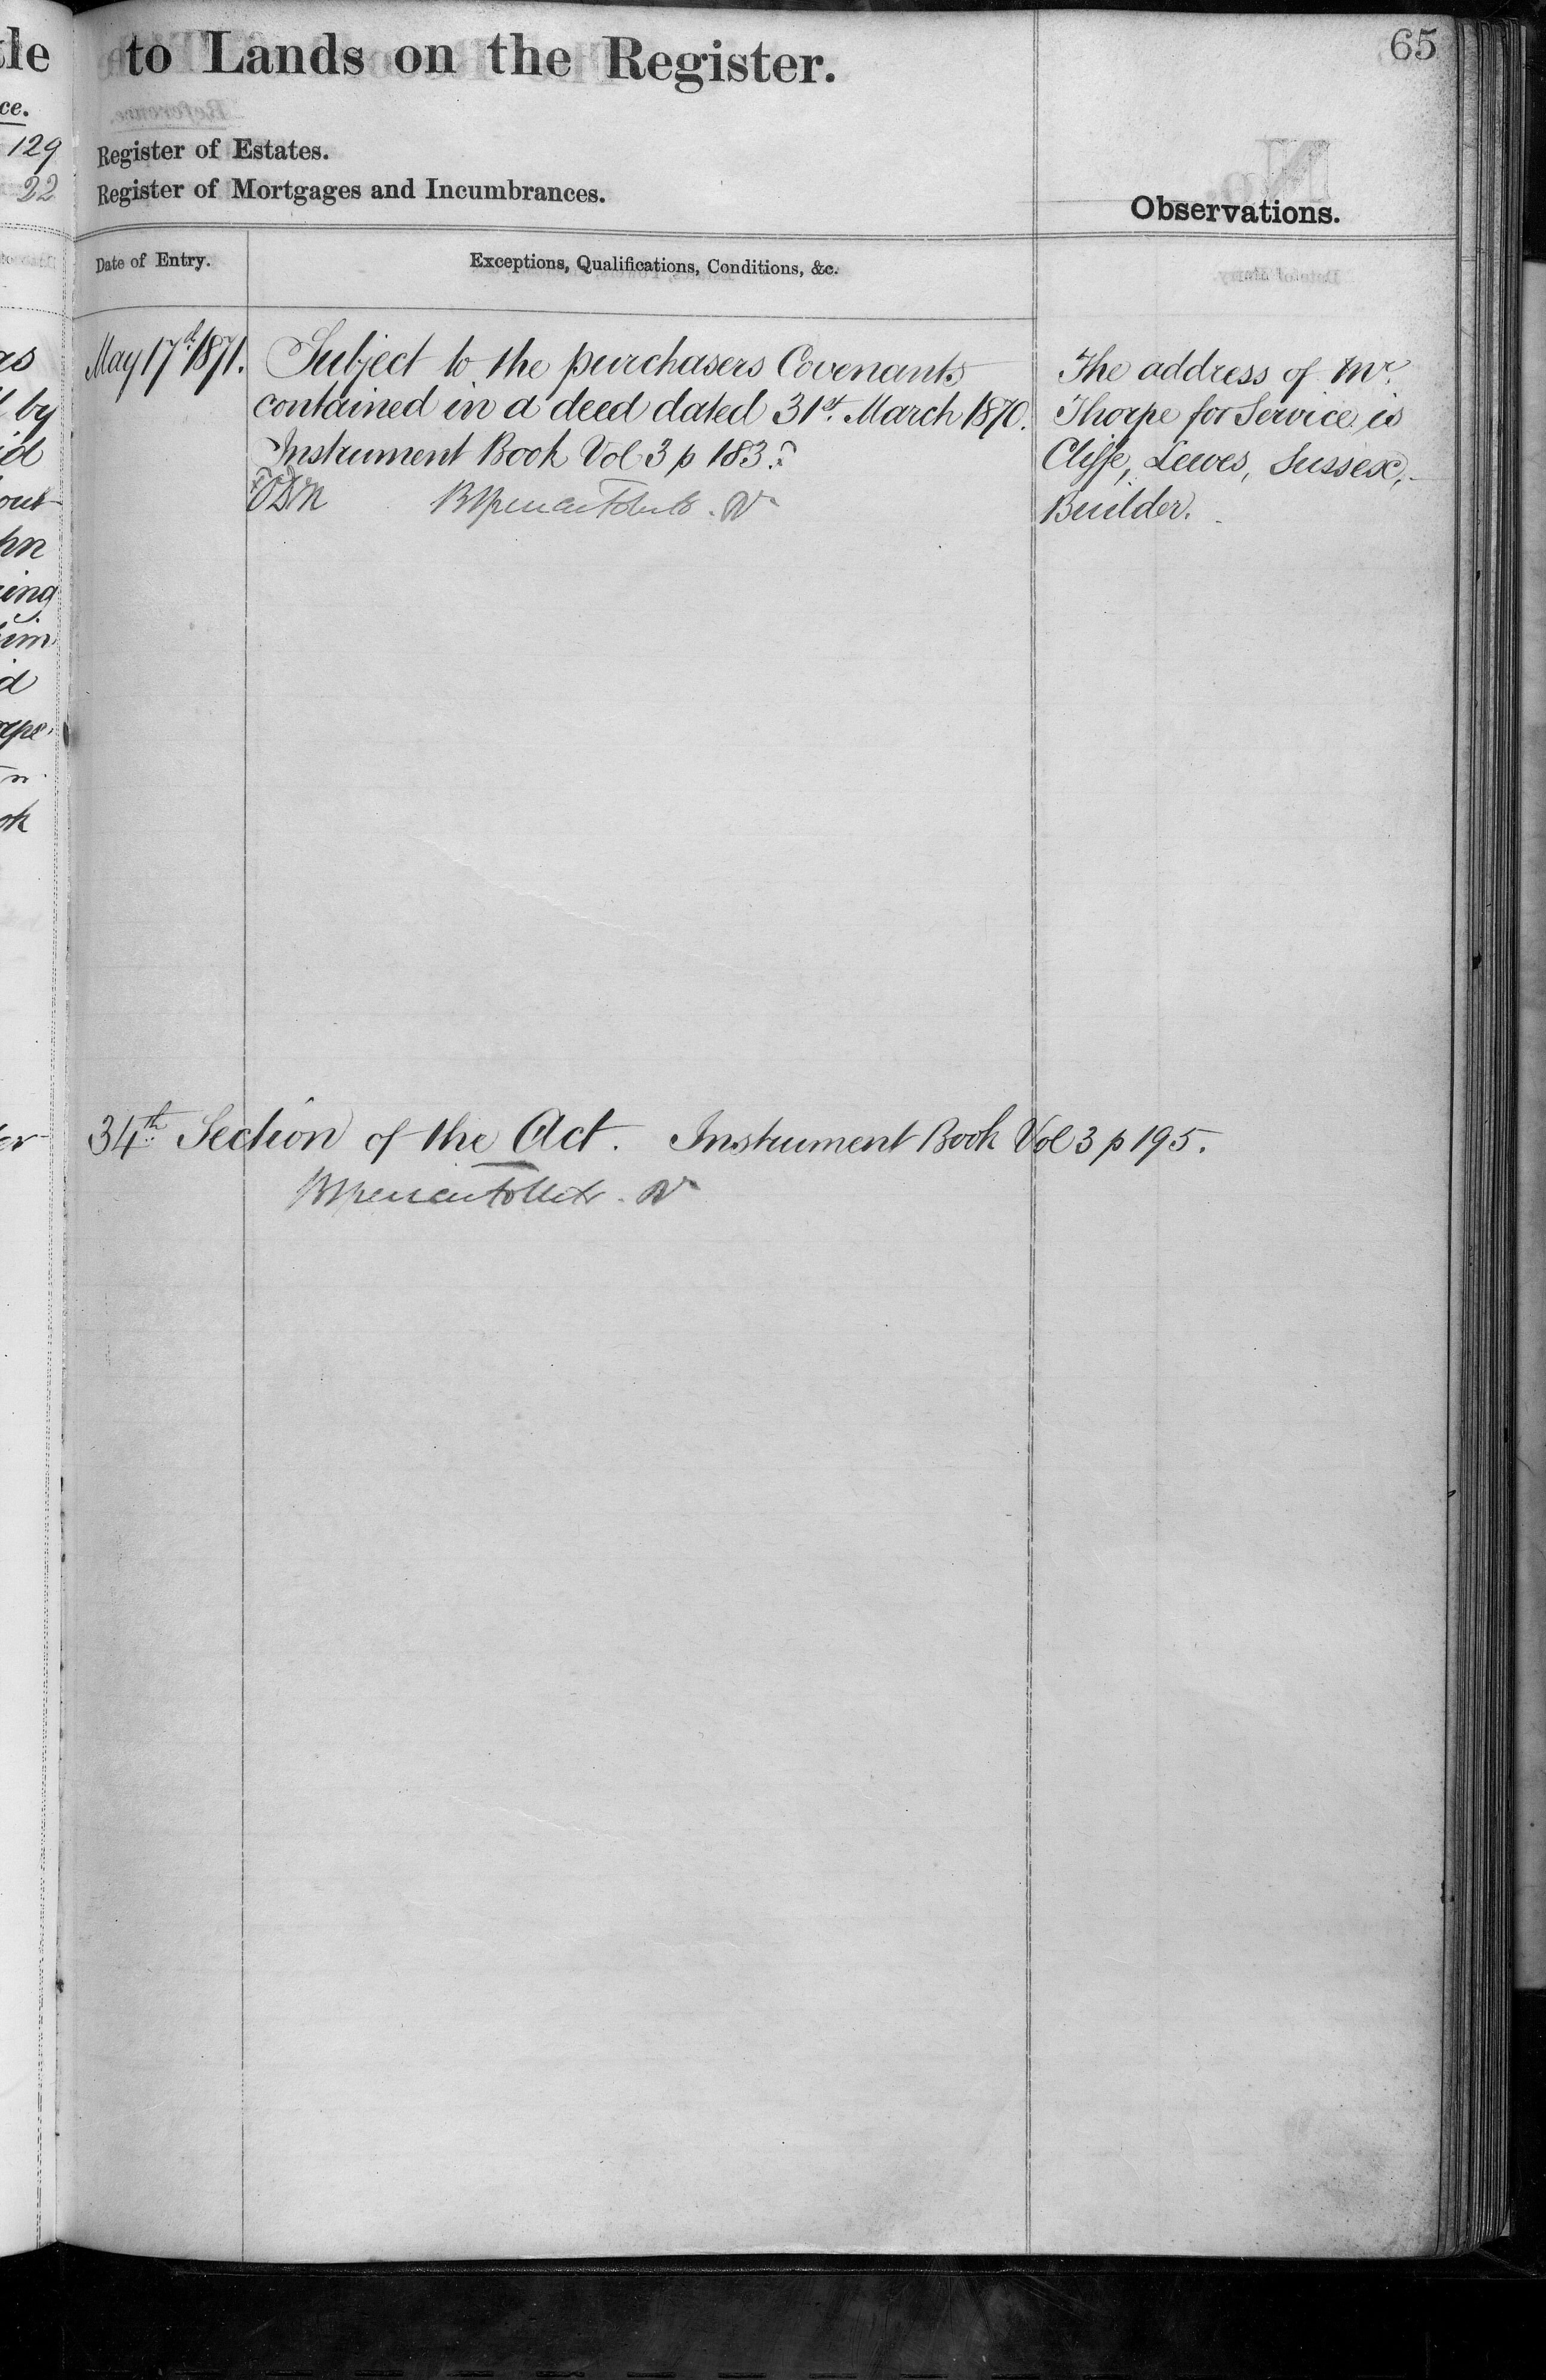 tle
ce.
129
22
as
by
id
out
hn
ing
im
d
rpe
n
ok
er
to Lands on the Register.
65
Register of Estates.
Register of Mortgages and Incumbrances.
Observations.
Date of Entry.
Exceptions, Qualifications, Conditions, &c.
May 17th 1871.
Subject to the purchasers Covenants
contained in a deed dated 31st March 1870.
Instrument Book Vol 3 p 183.
The address of Mr.
Thorpe for Service is
Cliffe, Lewes, Sussex,
Builder.
34th Section of the Act. Instrument Book Vol 3 p 195.